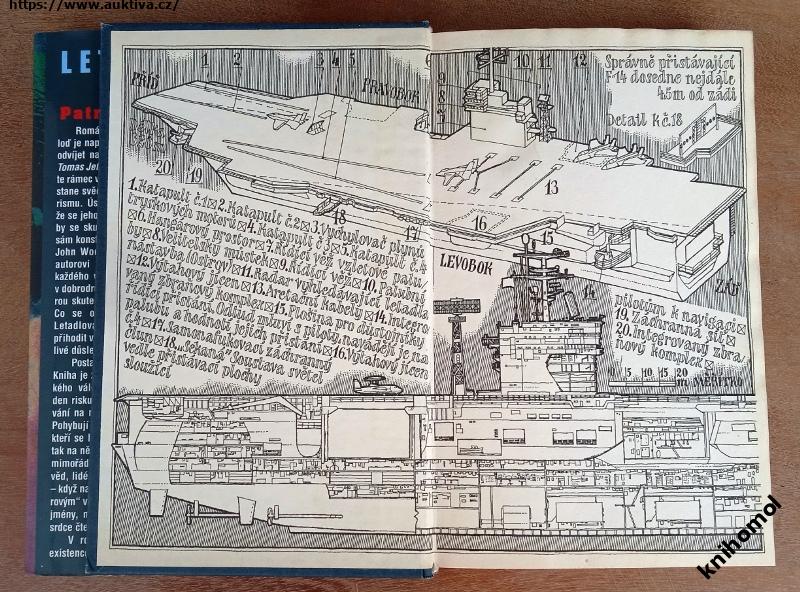 https://www.auktiva.cz/
LET
Patr
Román
loď je nap
odvíjet na
Tomas Jef
te rámec v
stane svě
rismu. Ús
že se jeho
by se sku
sám konst
John Woo
autorovi
každého v
v dobrodru
rou skute
Co se o
Letadlova
přihodit v
livé důsle
Posta
Kniha je z
kého vál
den risku
vání na m
Pohybují
kteří se l
tak na ně
mimořád
věd, lidé
– když na
rovým“ v
jmény, n
srdce čte
V ro
existenc
1 2 3 4 5
PŘÍĎ
PRAVOBOK
20 19
18
17
1. Katapult č.1 2. Katapult č.2 3. Vychylovač plynů
tryskových motorů 4. Katapult č.3 5. Katapult č.4
6. Hangárový prostor 7. Řídící věž vzletové palu
by 8. Velitelský můstek 9. Řídící věž 10. Palubní
nástavba (Ostrov) 11. Radar vyhledávající letadla
12. Výtahový jícen 13. Aretační kabely 14. Integro
vaný zbraňový komplex 15. Plošina pro důstojníky
řídící přistání. Odsud mluví s piloty, navádějí je na
palubu a hodnotí jejich přistání 16. Výtahový jícen
č.4 17. Samonafukovací záchranný
člun 18. „Sekaná“ Soustava světel
vedle přistávací plochy
sloužící
9
8
10 11 12
Správně přistávající
F-14 dosedne nejdále
45m od zádi
Detail k č.18
13
16
15
LEVOBOK
ZÁĎ
14
pilotům k navigaci
19. Záchranná síť
20. Integrovaný zbra
ňový komplex
0 5 10 15 20
m MĚŘÍTKO
knihomol